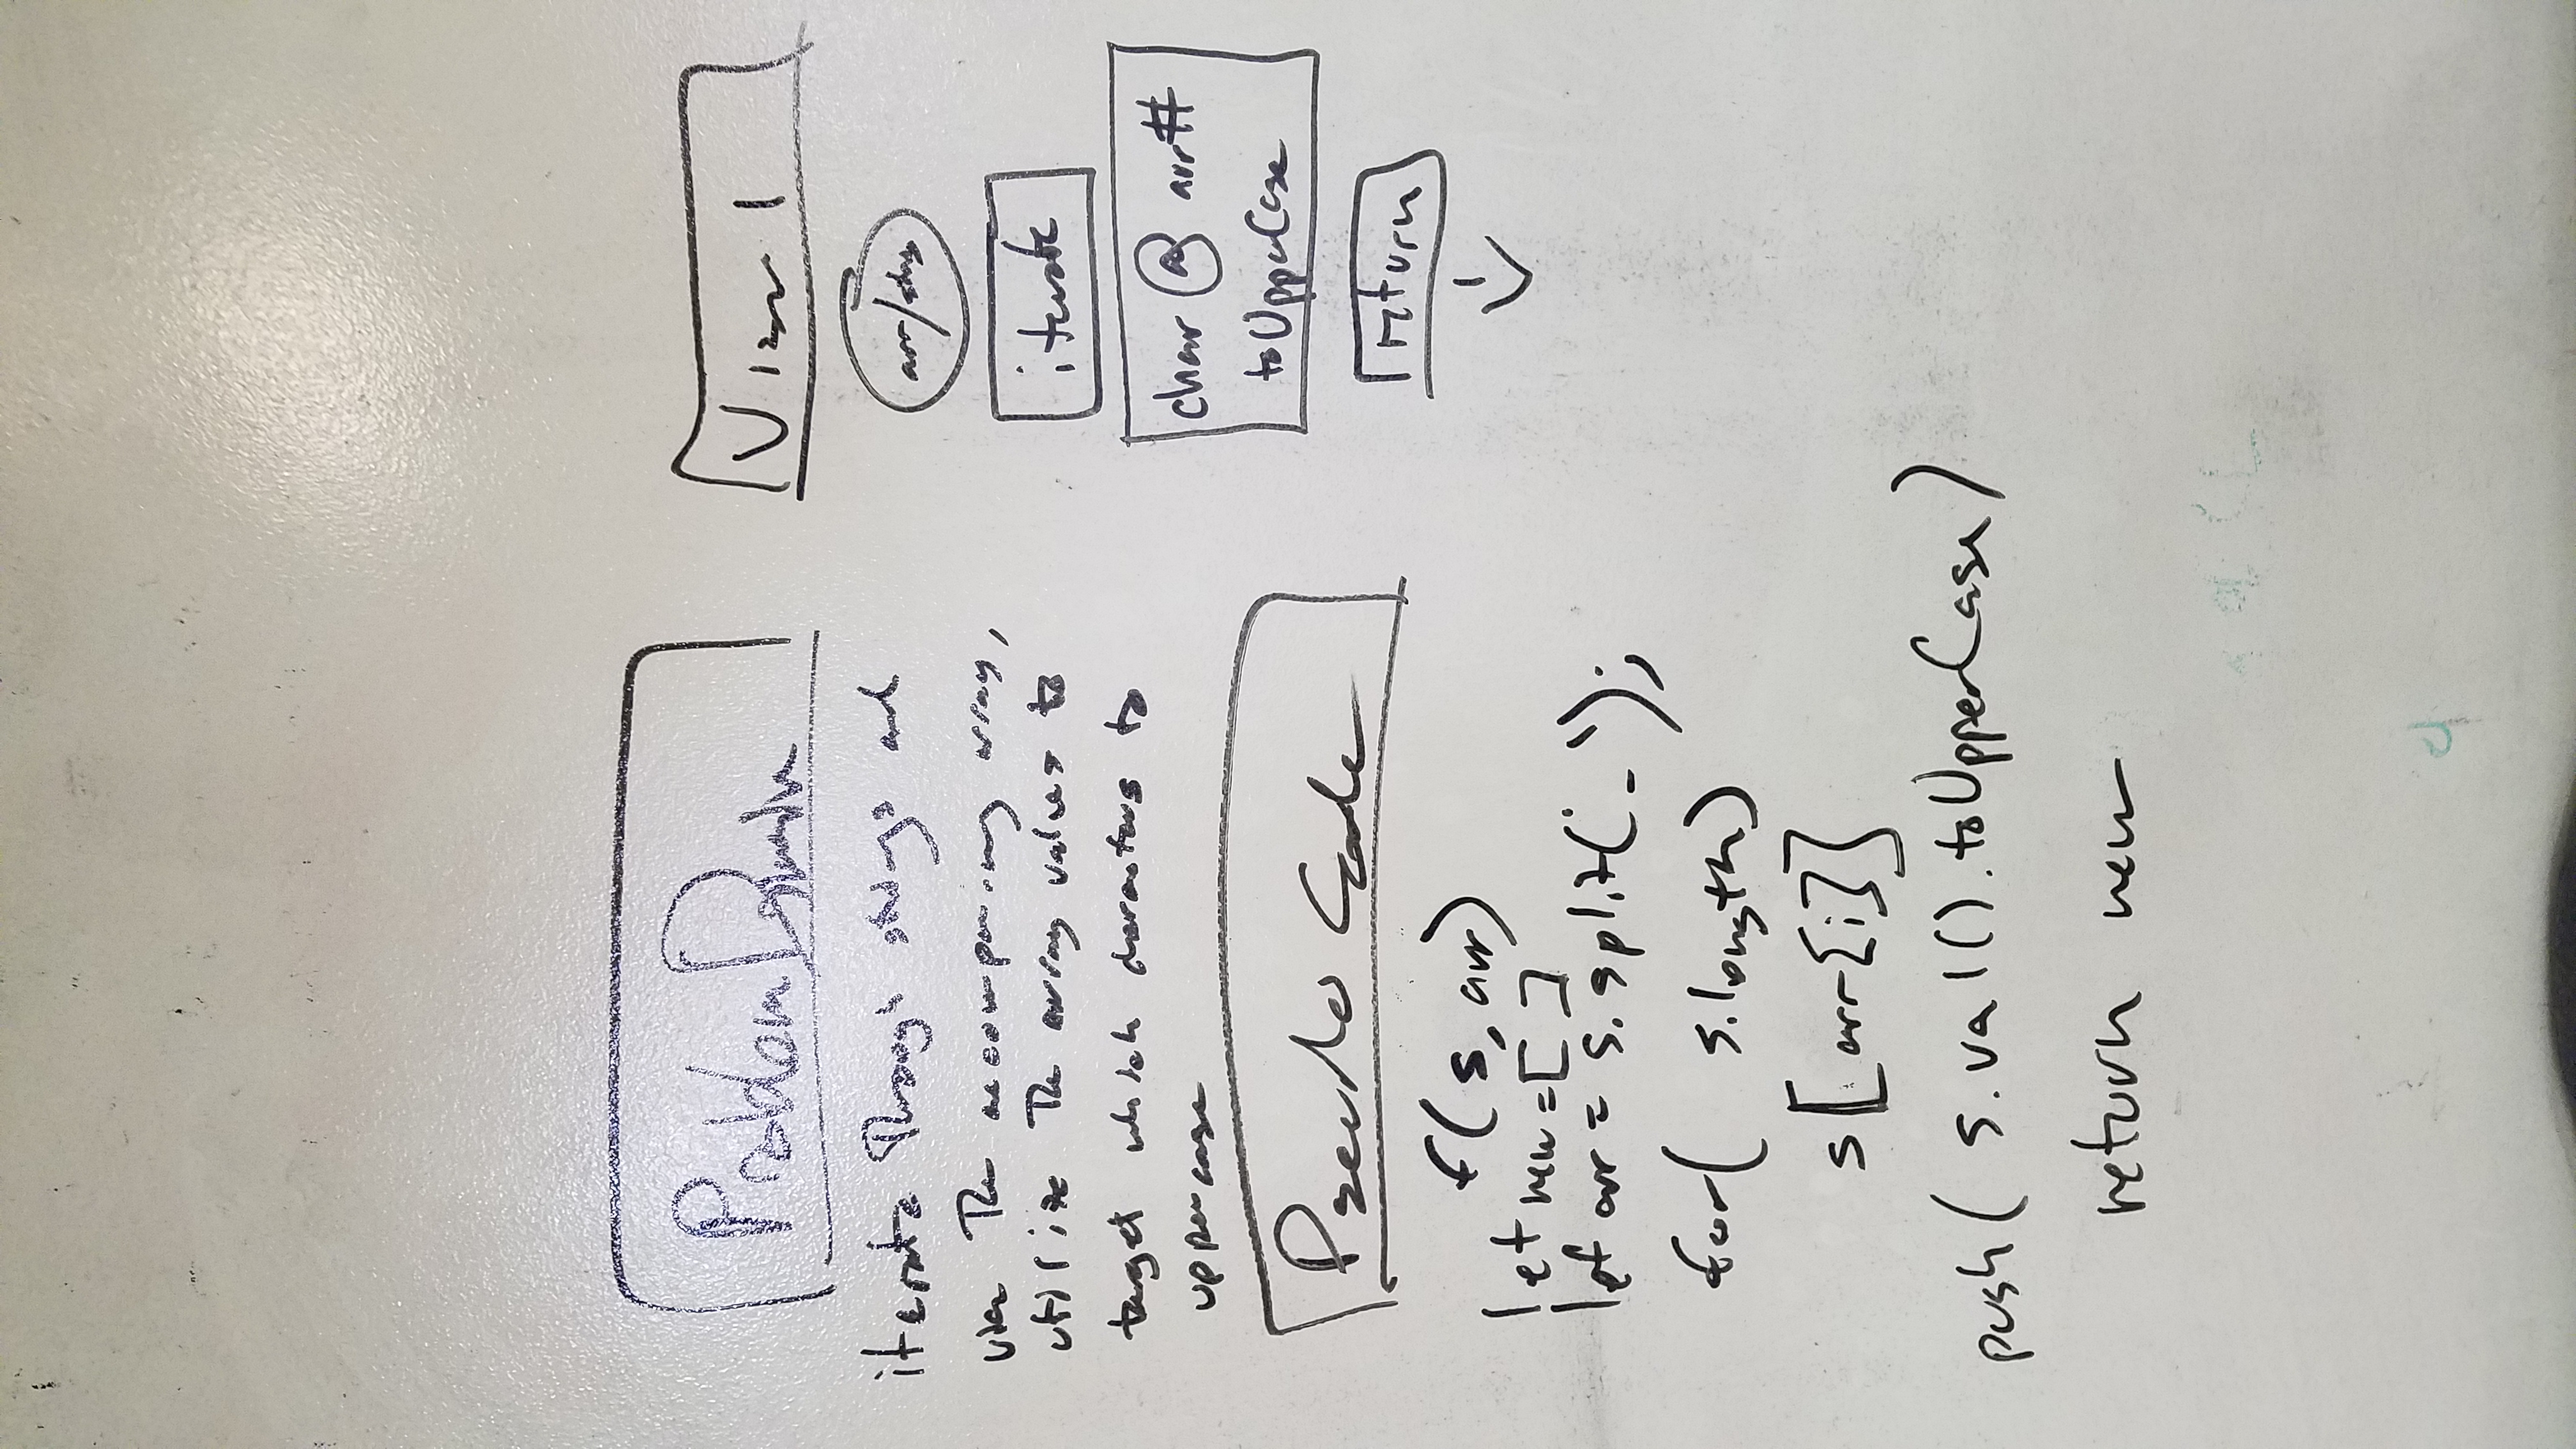 Problem Domain
iterate through strings and
via The accompaning array,
utilize The array values to
target which characters to
uppercase
Pseudo Code
f(s, arr)
let new = [ ]
let arr = s.split('_');
for( s.length)
s[arr[i]]
push( s.val().toUpperCase)
return new
arr/string
iterate
char @ arr#
toUpperCase
return